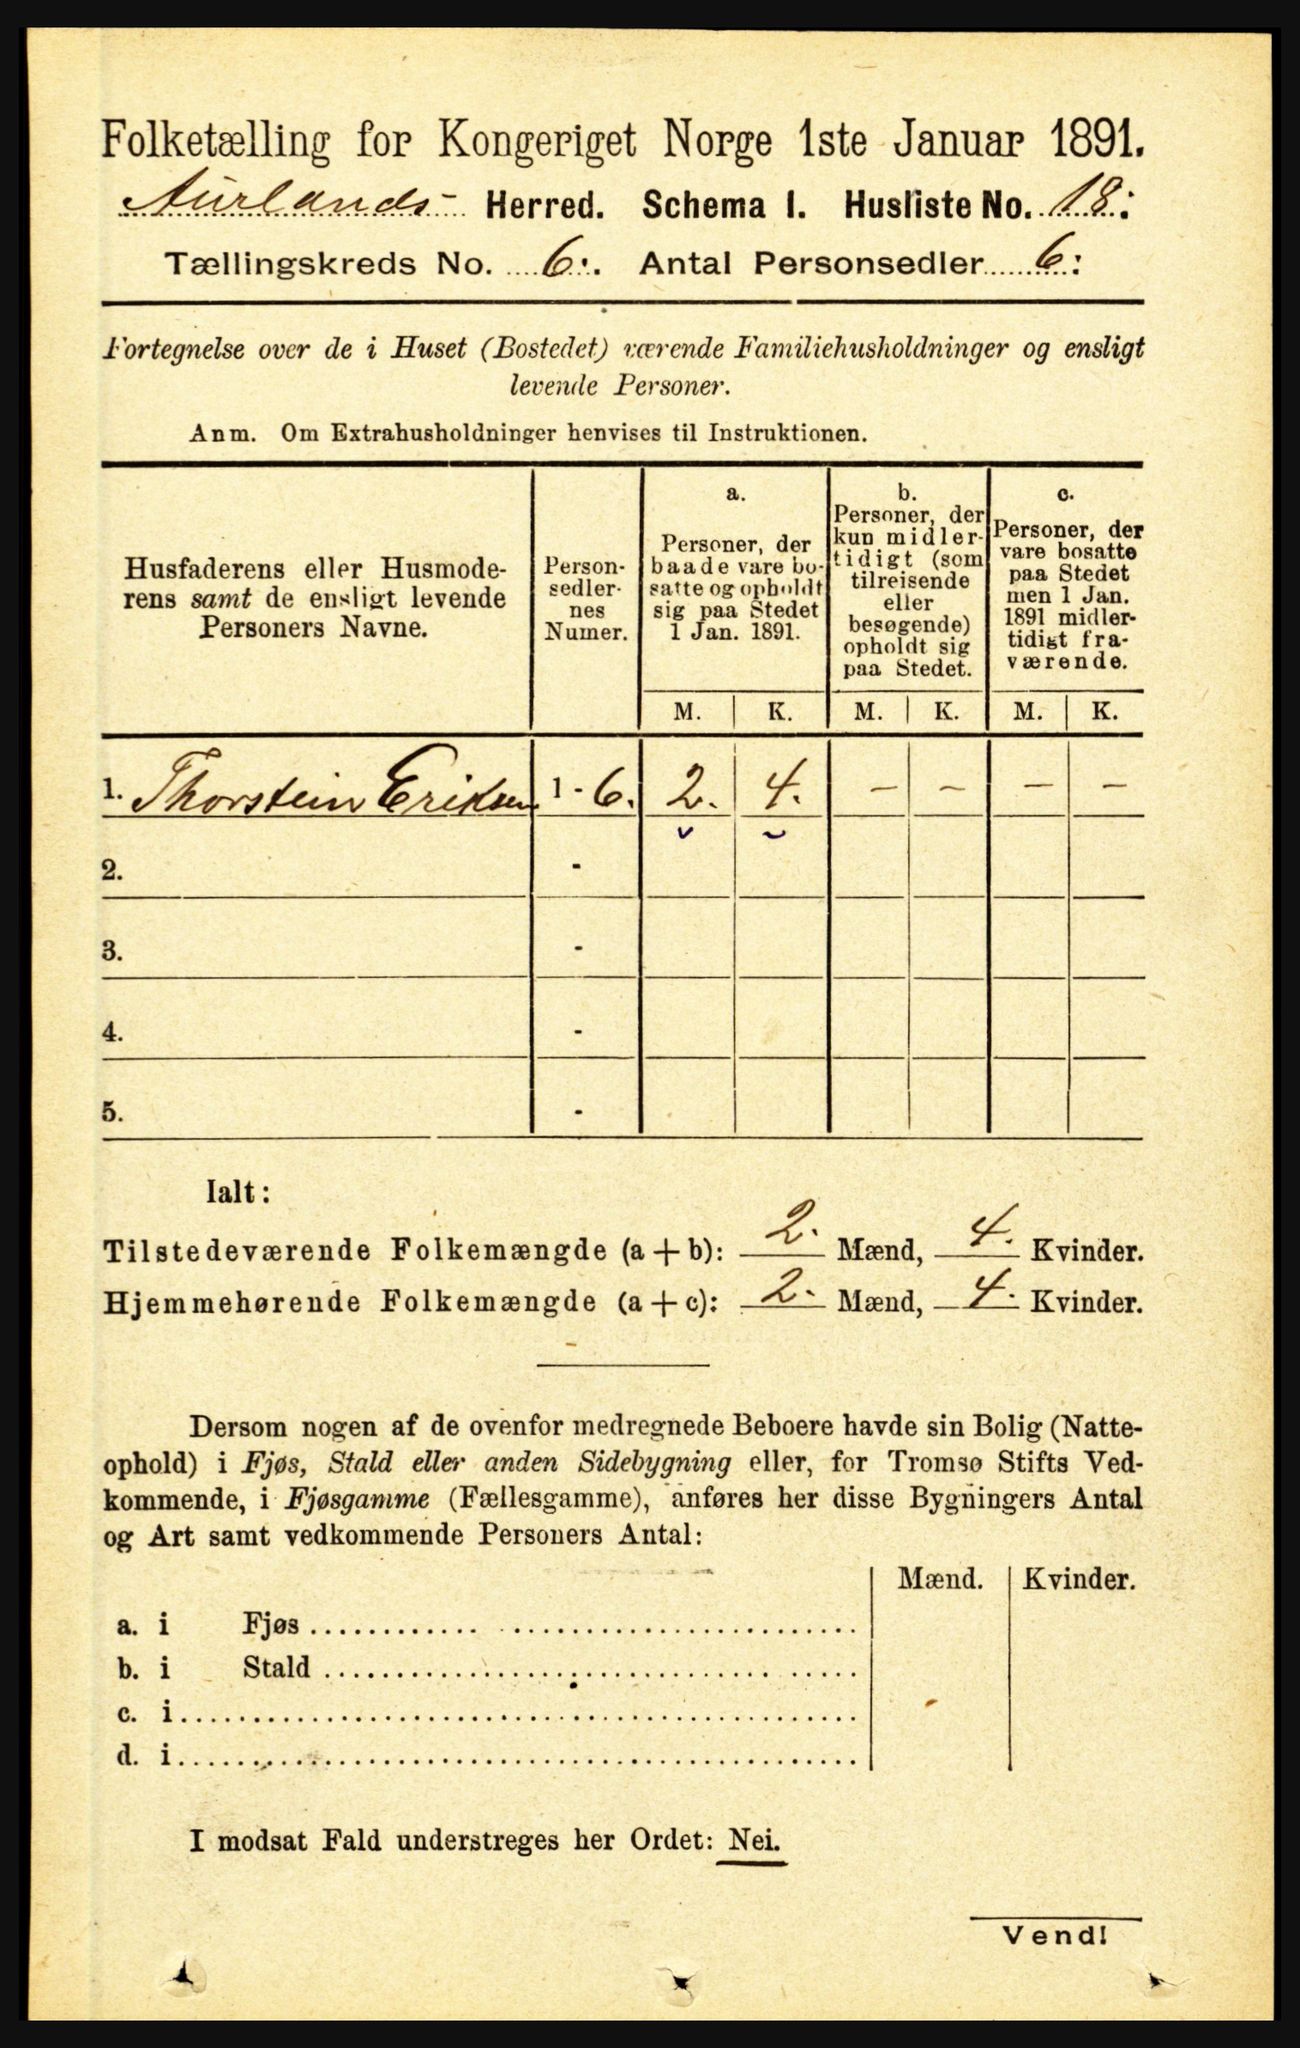 Folketælling for Kongeriget Norge 1ste Januar 1891.
Aurlands- Herred. Schema I. Husliste No. 18.
Tællingskreds No. 6. Antal Personsedler 6.
Fortegnelse over de i Huset (Bostedet) værende Familiehusholdninger og ensligt
levende Personer.
Anm. Om Extrahusholdninger henvises til Instruktionen.
Husfaderens eller Husmode-
rens samt de ensligt levende
Personers Navne.
Person-
sedler-
nes
Numer.
a.
Personer, der
baade vare bo-
satte og opholdt
sig paa Stedet
1 Jan. 1891.
b.
Personer, der
kun midler-
tidigt (som
tilreisende
eller
besøgende)
opholdt sig
paa Stedet.
c.
Personer, der
vare bosatte
paa Stedet
men 1 Jan.
1891 midler-
tidigt fra-
værende.
M. K. M. K. M. K.
1. Thorstein Eriksen 1 - 6. 2. 4. - - - -
2. -
3. -
4. -
5. -
Ialt:
Tilstedeværende Folkemængde (a + b): 2. Mænd, 4. Kvinder.
Hjemmehørende Folkemængde (a + c): 2. Mænd, 4. Kvinder.
Dersom nogen af de ovenfor medregnede Beboere havde sin Bolig (Natte-
ophold) i Fjøs, Stald eller anden Sidebygning eller, for Tromsø Stifts Ved-
kommende, i Fjøsgamme (Fællesgamme), anføres her disse Bygningers Antal
og Art samt vedkommende Personers Antal:
Mænd. Kvinder.
a. i Fjøs
b. i Stald
c. i
d. i
I modsat Fald understreges her Ordet: Nei.
Vend!